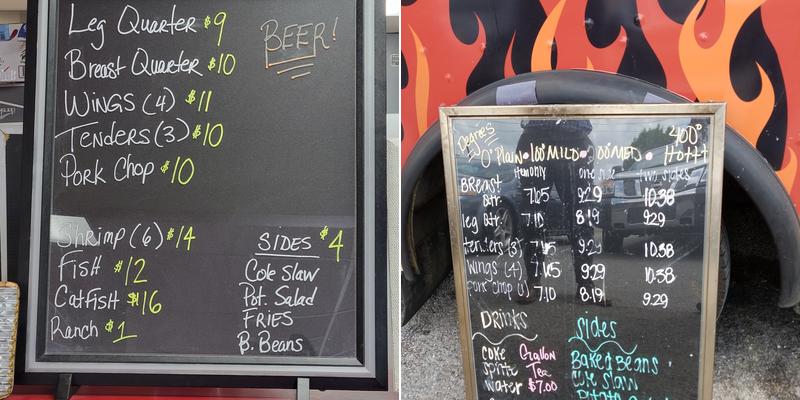 Leg Quarter $9
Breast Quarter $10
BEER!
WINGS (4) $11
TENDERS (3) $10
PORK CHOP $10
Shrimp (6) $14
FISH $12
CATFISH $16
Ranch $1
SIDES $4
Cole Slaw
Pot. Salad
FRIES
B. Beans
Degrees
0° Plain • 100° MILD • 00° MED • 400° HOTTT
Item only one side two sides
Breast Qtr 9.29 10.38
leg Qtr. 7.10 8.19 9.29
tenders (3) 10.38
Wings (4) 9.29 10.38
Pork chop 7.10 8.19 9.29
DRINKS
coke
sprite
water
Gallon
Tea
$7.00
Sides
Baked Beans
Cole slaw
Potato